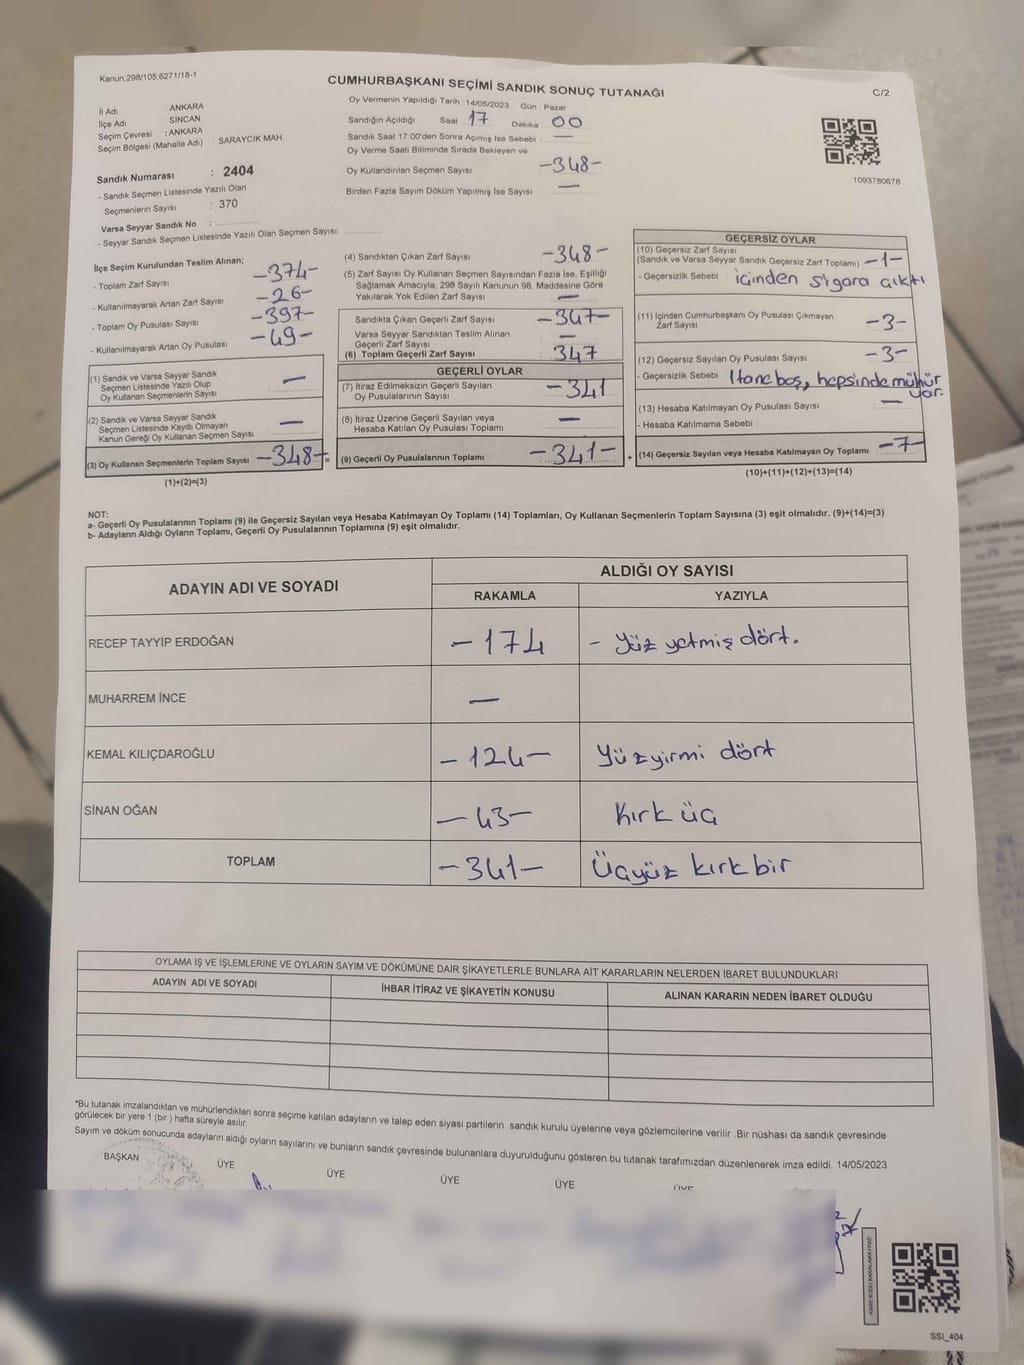 Kanun;298/105;6271/18-1
CUMHURBAŞKANI SEÇİMİ SANDIK SONUÇ TUTANAĞI
C/2
İl Adı : ANKARA
İlçe Adı : SİNCAN
Seçim Çevresi : ANKARA
Seçim Bölgesi (Mahalle Adı) SARAYCIK MAH.
Sandık Numarası : 2404
- Sandık Seçmen Listesinde Yazılı Olan
Seçmenlerin Sayısı : 370
Varsa Seyyar Sandık No :
- Seyyar Sandık Seçmen Listesinde Yazılı Olan Seçmen Sayısı:
Oy Vermenin Yapıldığı Tarih : 14/05/2023 Gün : Pazar
Sandığın Açıldığı Saat 17 Dakika 00
Sandık Saat 17:00'den Sonra Açımış İse Sebebi : —
Oy Verme Saati Bitiminde Sırada Bekleyen ve
Oy Kullandırılan Seçmen Sayısı -348-
Birden Fazla Sayım Döküm Yapılmış İse Sayısı —
1093780678
İlçe Seçim Kurulundan Teslim Alınan;
- Toplam Zarf Sayısı -374-
- Kullanılmayarak Artan Zarf Sayısı -26-
- Toplam Oy Pusulası Sayısı -397-
- Kullanılmayarak Artan Oy Pusulası -49-
(1) Sandık ve Varsa Seyyar Sandık
Seçmen Listesinde Yazılı Olup
Oy Kullanan Seçmenlerin Sayısı —
(2) Sandık ve Varsa Seyyar Sandık
Seçmen Listesinde Kayıtlı Olmayan
Kanun Gereği Oy Kullanan Seçmen Sayısı —
(3) Oy Kullanan Seçmenlerin Toplam Sayısı -348-
=
(1)+(2)=(3)
(4) Sandıktan Çıkan Zarf Sayısı -348-
(5) Zarf Sayısı Oy Kullanan Seçmen Sayısından Fazla İse, Eşitliği
Sağlamak Amacıyla, 298 Sayılı Kanunun 98. Maddesine Göre
Yakılarak Yok Edilen Zarf Sayısı —
Sandıkta Çıkan Geçerli Zarf Sayısı -347-
Varsa Seyyar Sandıktan Teslim Alınan
Geçerli Zarf Sayısı —
(6) Toplam Geçerli Zarf Sayısı 347
GEÇERLİ OYLAR
(7) İtiraz Edilmeksizin Geçerli Sayılan
Oy Pusulasının Sayısı -341
(8) İtiraz Üzerine Geçerli Sayılan veya
Hesaba Katılan Oy Pusulası Toplamı —
(9) Geçerli Oy Pusulalarının Toplamı -341-
+
GEÇERSİZ OYLAR
(10) Geçersiz Zarf Sayısı
(Sandık ve Varsa Seyyar Sandık Geçersiz Zarf Toplamı) -1-
- Geçersizlik Sebebi : içinden sigara çıktı
(11) İçinden Cumhurbaşkanı Oy Pusulası Çıkmayan
Zarf Sayısı -3-
(12) Geçersiz Sayılan Oy Pusulası Sayısı -3-
- Geçersizlik Sebebi 1 tane boş, hepsinde mühür
var.
(13) Hesaba Katılmayan Oy Pusulası Sayısı —
- Hesaba Katılmama Sebebi :
(14) Geçersiz Sayılan veya Hesaba Katılmayan Oy Toplamı -7-
(10)+(11)+(12)+(13)=(14)
NOT:
a- Geçerli Oy Pusulalarının Toplamı (9) ile Geçersiz Sayılan veya Hesaba Katılmayan Oy Toplamı (14) Toplamları, Oy Kullanan Seçmenlerin Toplam Sayısına (3) eşit olmalıdır. (9)+(14)=(3)
b- Adayların Aldığı Oyların Toplamı, Geçerli Oy Pusulalarının Toplamına (9) eşit olmalıdır.
ADAYIN ADI VE SOYADI
ALDIĞI OY SAYISI
RAKAMLA YAZIYLA
RECEP TAYYİP ERDOĞAN -174 - Yüz yetmiş dört.
MUHARREM İNCE —
KEMAL KILIÇDAROĞLU -124- Yüzyirmi dört
SİNAN OĞAN -43- Kırk üç
TOPLAM -341- Üçyüz kırk bir
OYLAMA İŞ VE İŞLEMLERİNE VE OYLARIN SAYIM VE DÖKÜMÜNE DAİR ŞİKAYETLERLE BUNLARA AİT KARARLARIN NELERDEN İBARET BULUNDUKLARI
ADAYIN ADI VE SOYADI İHBAR İTİRAZ VE ŞİKAYETİN KONUSU ALINAN KARARIN NEDEN İBARET OLDUĞU
*Bu tutanak imzalandıktan ve mühürlendikten sonra seçime katılan adayların ve talep eden siyasi partilerin sandık kurulu üyelerine veya gözlemcilerine verilir .Bir nüshası da sandık çevresinde
görülecek bir yere 1 (bir ) hafta süreyle asılır.
Sayım ve döküm sonucunda adayların aldığı oyların sayılarını ve bunların sandık çevresinde bulunanlara duyurulduğunu gösteren bu tutanak tarafımızdan düzenlenerek imza edildi. 14/05/2023
BAŞKAN ÜYE ÜYE ÜYE ÜYE ÜYE
KARE KODU KARALAMAYINIZ!
SSI_404